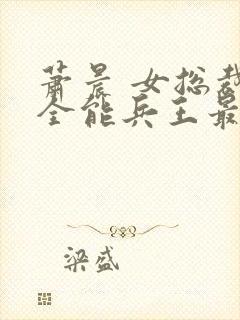 萧晨 女总裁
全能兵王最
梁盛